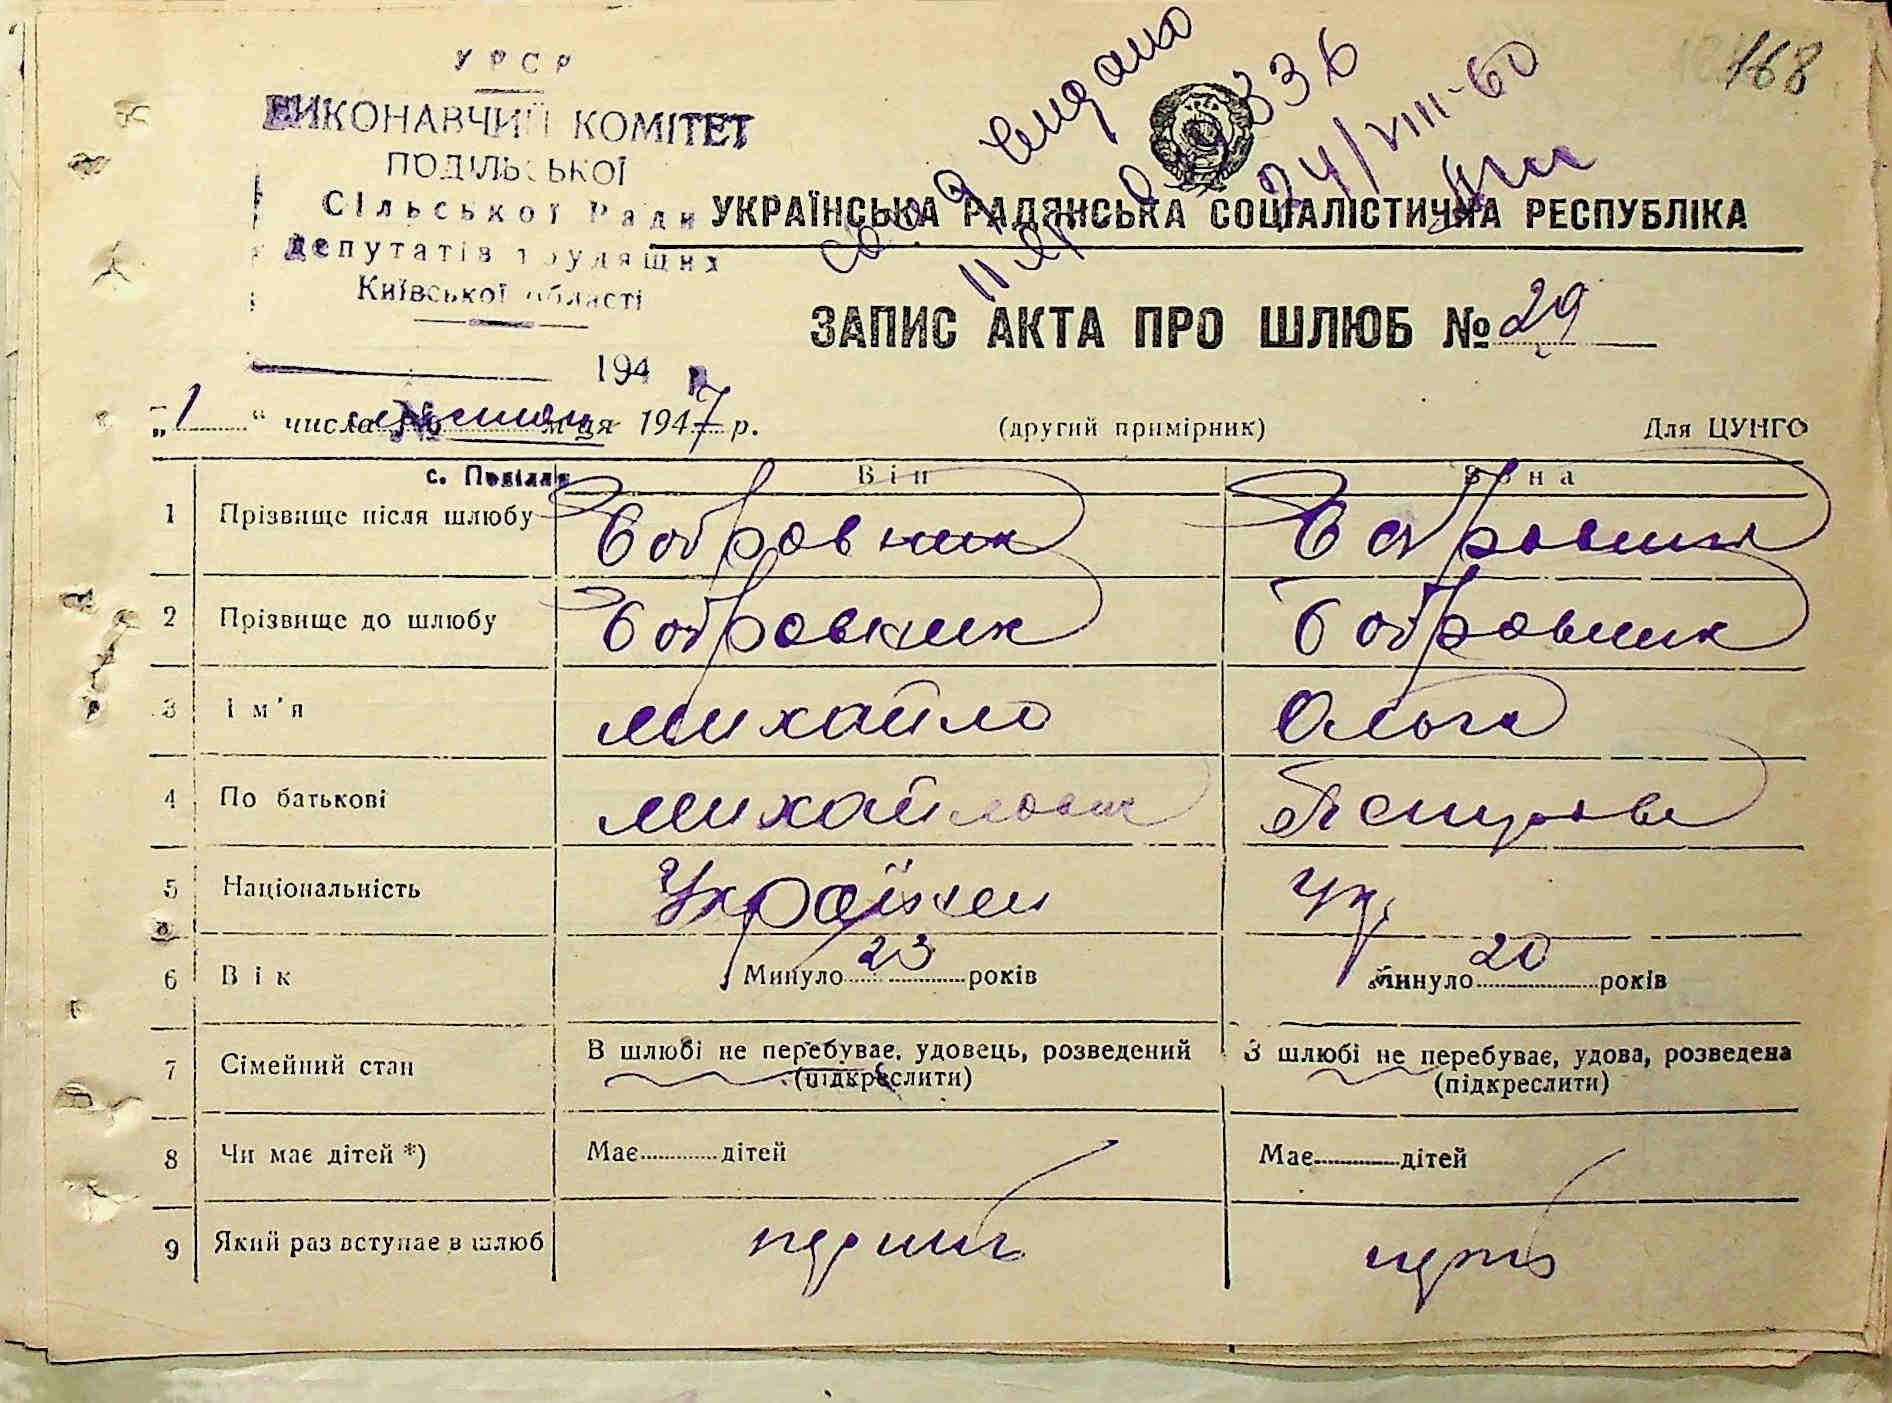 168
УРСР
ВИКОНАВЧИЙ КОМІТЕТ
ПОДІЛЬСЬКОЇ
Сільської Ради
Депутатів трудящих
Київської області
194 р
видано
24/VIII-60
УКРАЇНСЬКА РАДЯНСЬКА СОЦІАЛІСТИЧНА РЕСПУБЛІКА
ЗАПИС АКТА ПРО ШЛЮБ № 29
„1“ числа м-ця 1947 р.
(другий примірник)
Для ЦУНГО
с. Поділля
Він
Вона
1 Прізвище після шлюбу Бобровник Бобровник
2 Прізвище до шлюбу Бобровник Бобровник
3 Ім'я Михайло Ольга
4 По батькові Михайлович
5 Національність Українец Ук
6 Вік Минуло 23 років Минуло 20 років
7 Сімейний стан В шлюбі не перебуває, удовець, розведений В шлюбі не перебуває, удова, розведена
(підкреслити) (підкреслити)
8 Чи має дітей *) Має дітей Має дітей
9 Який раз вступає в шлюб